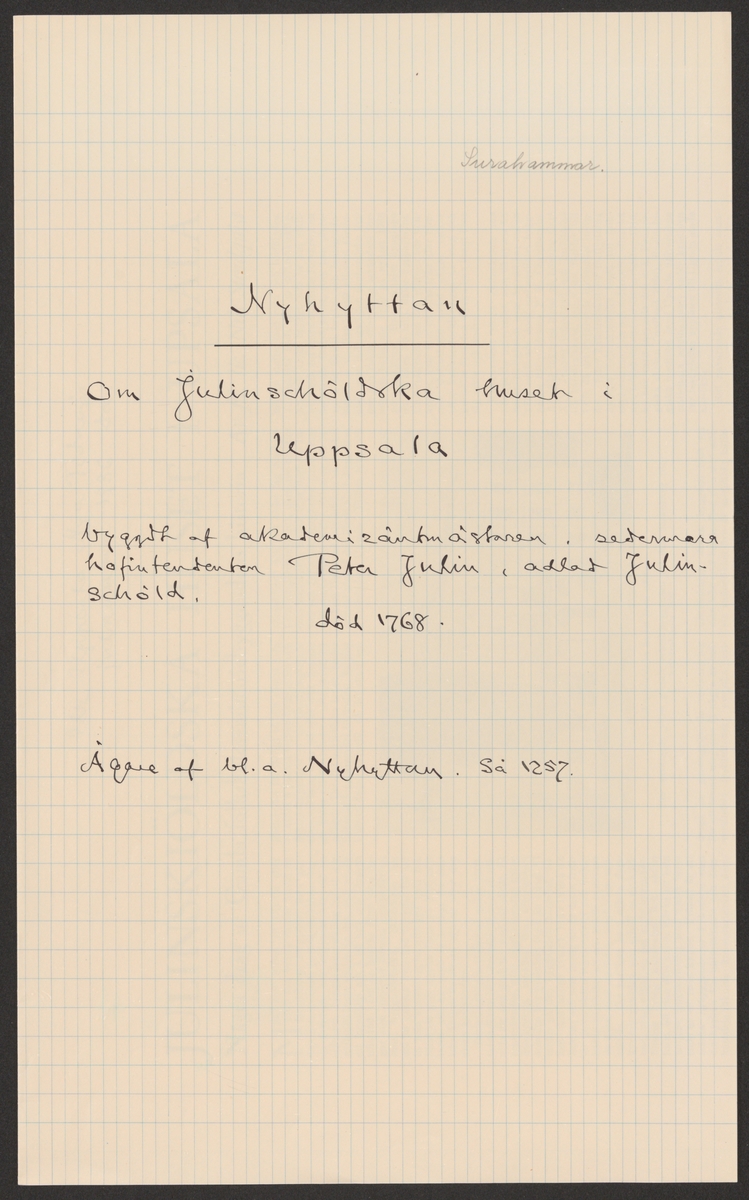 Surahammar.
Nyhyttan
Om Julinschöldska huset i
Uppsala
byggdt af akademiräntmästaren, sedermera
hofintendenten Peter Julin, adlad Julin-
schöld.
död 1768.
Ägare af bl.a. Nyhyttan. Så 1257.